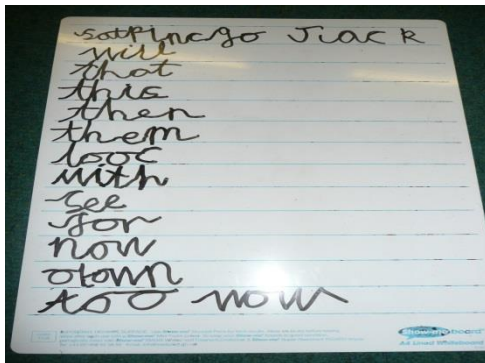 satpincgo Jiack
will
that
this
then
them
looc
with
see
for
now
down
too now
Show-me board
A4 Lined Whiteboard